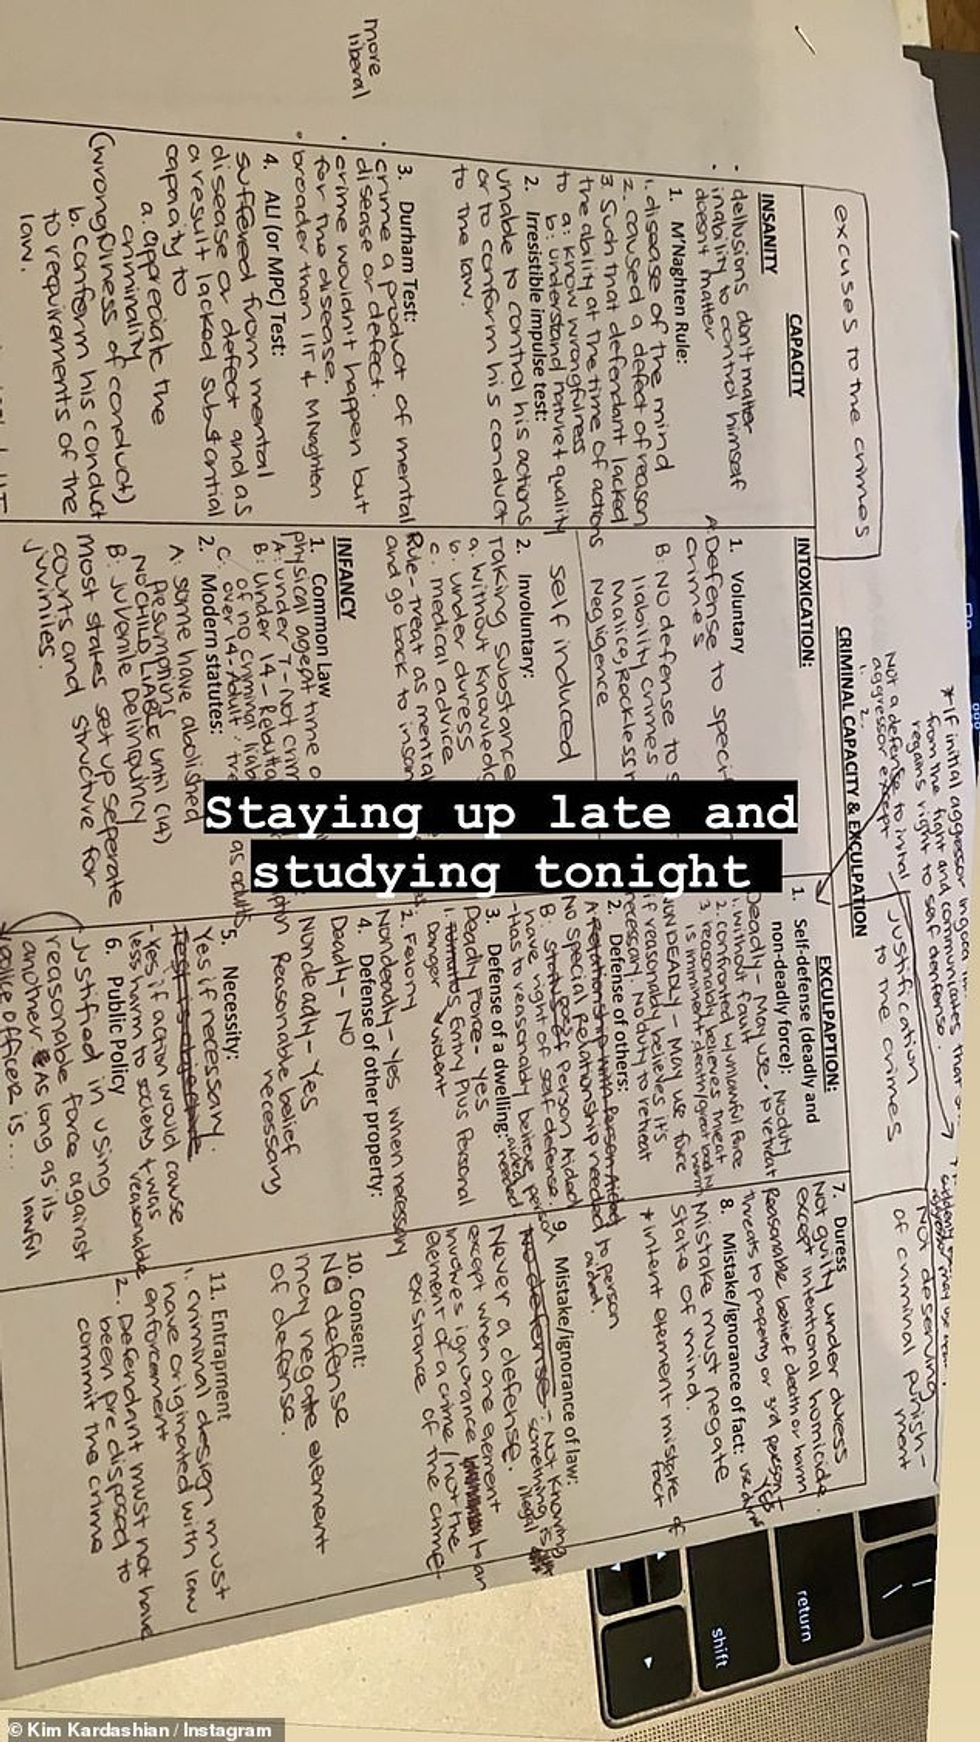 Staying up late and
studying tonight
more
liberal
excuses to the crimes
* If initial aggressor
from the fight and communicates that
regains right to self defense.
Not a defense to
1. 2.
aggressor except
justification
to the crimes
Not deserving
of criminal punish-
ment
CRIMINAL CAPACITY & EXCULPATION
CAPACITY
INSANITY
- dellusions don't matter
- inability to control himself
doesn't matter
1. M'Naghten Rule:
1. disease of the mind
2. caused a defect of reason
3. Such that defendant lacked
the ability at the time of actions
to a: know wrongfulness
b: understand nature & quality
2. Irresistible impulse test:
unable to control his actions
or to conform his conduct
to the law.
3. Durham Test:
• crime a product of mental
disease or defect.
• crime wouldn't happen but
for the disease.
• broader than IIT & MNaghten
4. ALI (or MPC) Test:
suffered from mental
disease or defect and as
a result lacked substantial
capacity to
a. appreciate the
criminality
(wrongfulness of conduct)
b. conform his conduct
to requirements of the
law.
INTOXICATION:
1. Voluntary
A. Defense to
crimes
B: No defense to
liability crimes
Malice, Reckless
Negligence
self induced
2. Involuntary:
Taking substance
a. without
b. under duress
c. medical advice
Rule - treat as mental
and go back to
INFANCY
1. Common Law
physical age @ time
A: under 7 - Not
B: Under 14 -
of no criminal
C: over 14 - Adult
as adults
2. Modern statutes:
A: some have abolished
Presumptions
NO CHILD LIABLE until (14)
B: Juvenile Delinquincy
most states set up seperate
courts and structure for
juviniles.
EXCULPATION:
1. Self-defense (deadly and
non-deadly force): No duty
retreat
Deadly - May use
1. without fault
2. confronted w/ unlawful force
3 reasonably believes threat
is imminent death/great
NONDEADLY - May use force
if reasonably believes it's
necessary. No duty to retreat
2. Defense of others:
No special Relationship needed
Person Aided
have right of self defense.
- Has to reasonably believe person
aided
needed
3. Defense of a dwelling:
Deadly Force - Yes
1. Entry Plus Personal
Danger violent
2. Felony
Nondeadly - Yes when necessary
4. Defense of other property:
Deadly - NO
Nondeadly - Yes
Reasonable belief
necessary
5. Necessity:
Yes if necessary.
- Yes if action would cause
less harm to society & was
reasonable
6. Public Policy
Justified in using
reasonable force against
another as long as its
lawful
Police officer is...
7. Duress
Not guilty under duress
except intentional homicide.
Reasonable belief death or harm
Threats to property or 3rd person
8. Mistake/ignorance of fact:
Mistake must negate
state of mind.
* intent element mistake of
fact
to person
aided.
9. Mistake/ignorance of law:
No defense - Not knowing
something is
illegal
Never a defense.
except when one element
involves ignorance
element of a crime/not the
existance of the crime
10. Consent:
NO defense
may negate element
of defense.
11. Entrapment
1. criminal design must
have originated with law
enforcement
2. Defendant must not have
been predisposed to
commit the crime
return
shift
© Kim Kardashian / Instagram